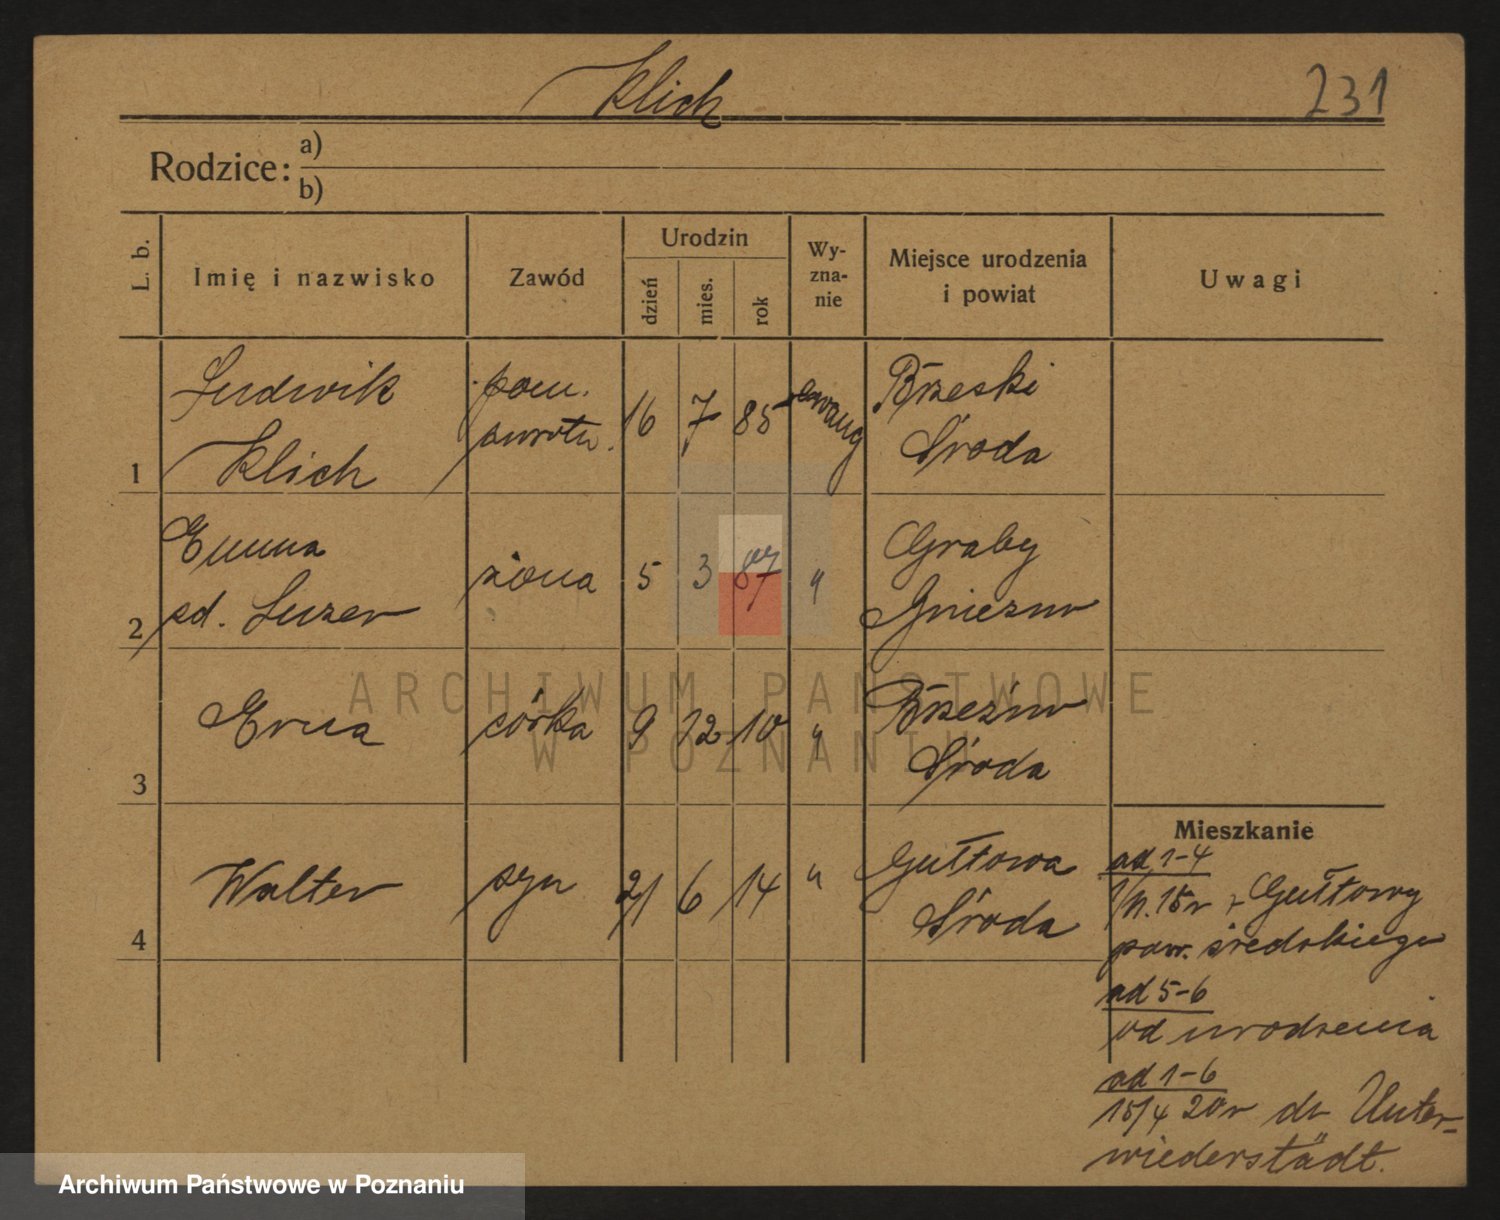 Klich
231
Rodzice: a)
b)
L. b.
Imię i nazwisko
Zawód
Urodzin
dzień
mies.
rok
Wy-
zna-
nie
Miejsce urodzenia
i powiat
Uwagi
1 Ludwik Klich
pom.
16 7 85 ewang
Brzeski
Środa
2 Emma
żona
5 3 87 "
Graby
Gniezno
3 Erna
córka
9 12 10 "
Brzeźno
Środa
4 Walter
syn
21 6 14 "
Gułtowa
Środa
Mieszkanie
ad 1-4
Gułtowy
pow. średzkiego
ad 5-6
od urodzenia
ad 1-6
15/4 20 r do Unter-
wiederstädt.
ARCHIWUM PAŃSTWOWE
W POZNANIU
Archiwum Państwowe w Poznaniu